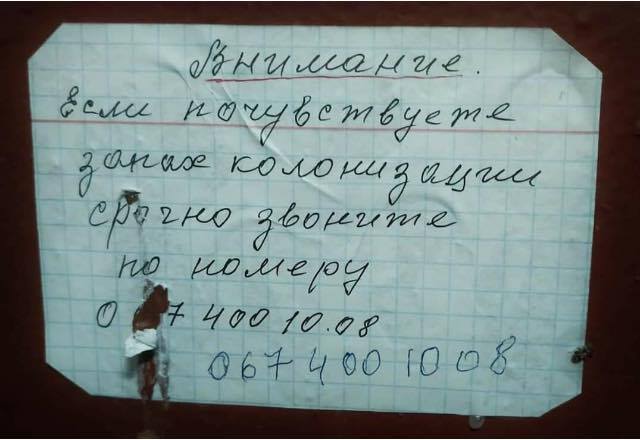 Внимание.
Если почувствуете
запах колонизации
срочно звоните
по номеру
0 7 400 10.08
067 400 10 08